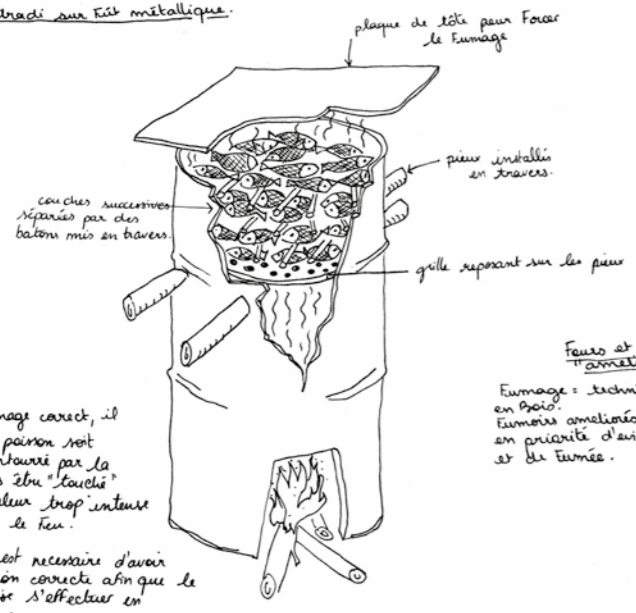 tradi sur Fût métallique.
plaque de tôte pour Forcer
le Fumage
pieux installés
en travers.
couches successives
séparées par des
batons mis en travers.
grille reposant sur les pieux
Fours et
"amel
Fumage = techni
en Bois.
Fumoirs ameliorés
en priorité d'evi
et de Fumée.
mage correct, il
poisson soit
entourré par la
s être "touché"
aleur trop intense
le Feu.
est necessaire d'avoir
on correcte afin que le
se s'effectuer en